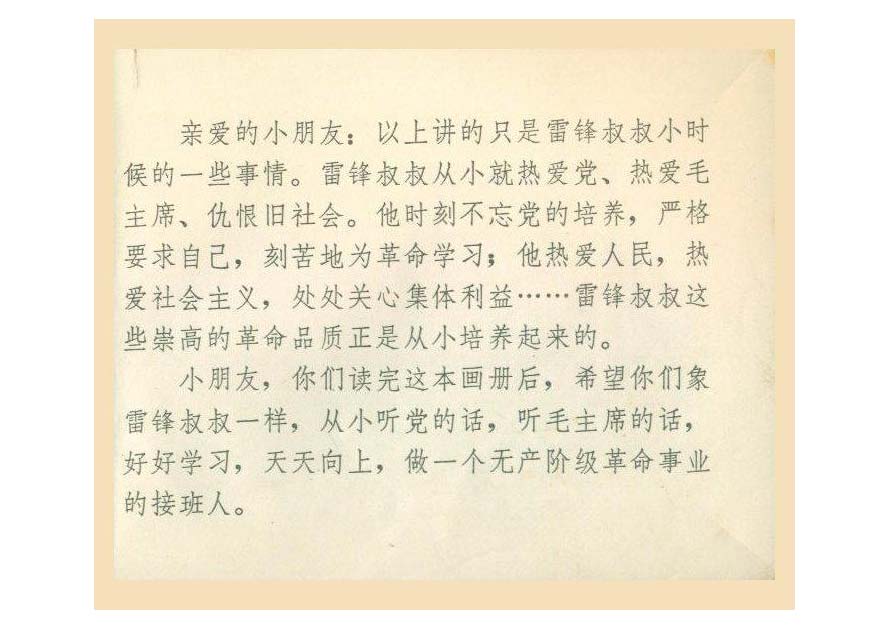 亲爱的小朋友：以上讲的只是雷锋叔叔小时
候的一些事情。雷锋叔叔从小就热爱党、热爱毛
主席、仇恨旧社会。他时刻不忘党的培养，严格
要求自己，刻苦地为革命学习；他热爱人民，热
爱社会主义，处处关心集体利益……雷锋叔叔这
些崇高的革命品质正是从小培养起来的。
小朋友，你们读完这本画册后，希望你们象
雷锋叔叔一样，从小听党的话，听毛主席的话，
好好学习，天天向上，做一个无产阶级革命事业
的接班人。